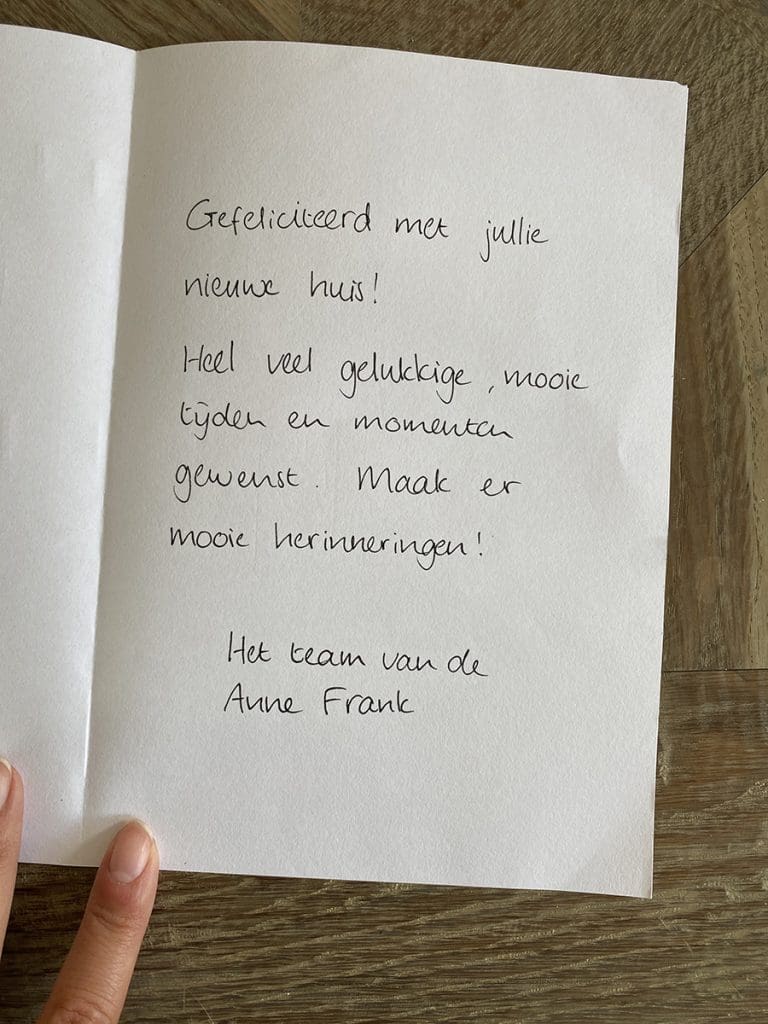 Gefeliciteerd met jullie
nieuwe huis!
Heel veel gelukkige, mooie
tijden en momenten
gewenst. Maak er
mooie herinneringen!
Het team van de
Anne Frank